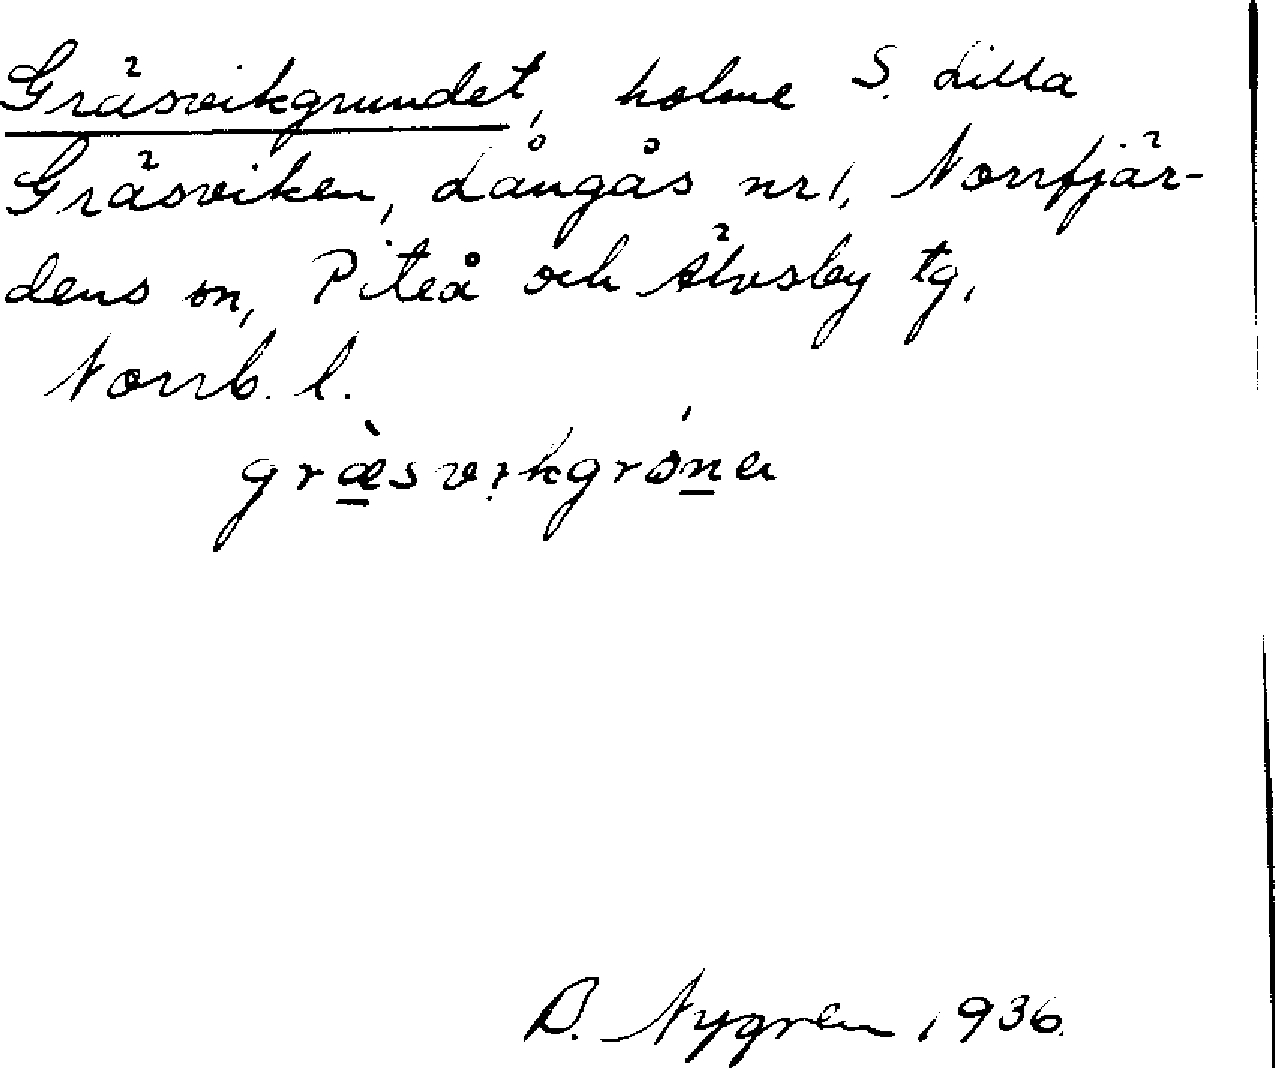 Gräsvikgrundet, holme S. Lilla
Gräsviken, Långås nr 1, Norrfjär-
dens sn, Piteå och Älvsby tg,
Norrb. l.
græ̀svikgróna
B. Nygren 1936.